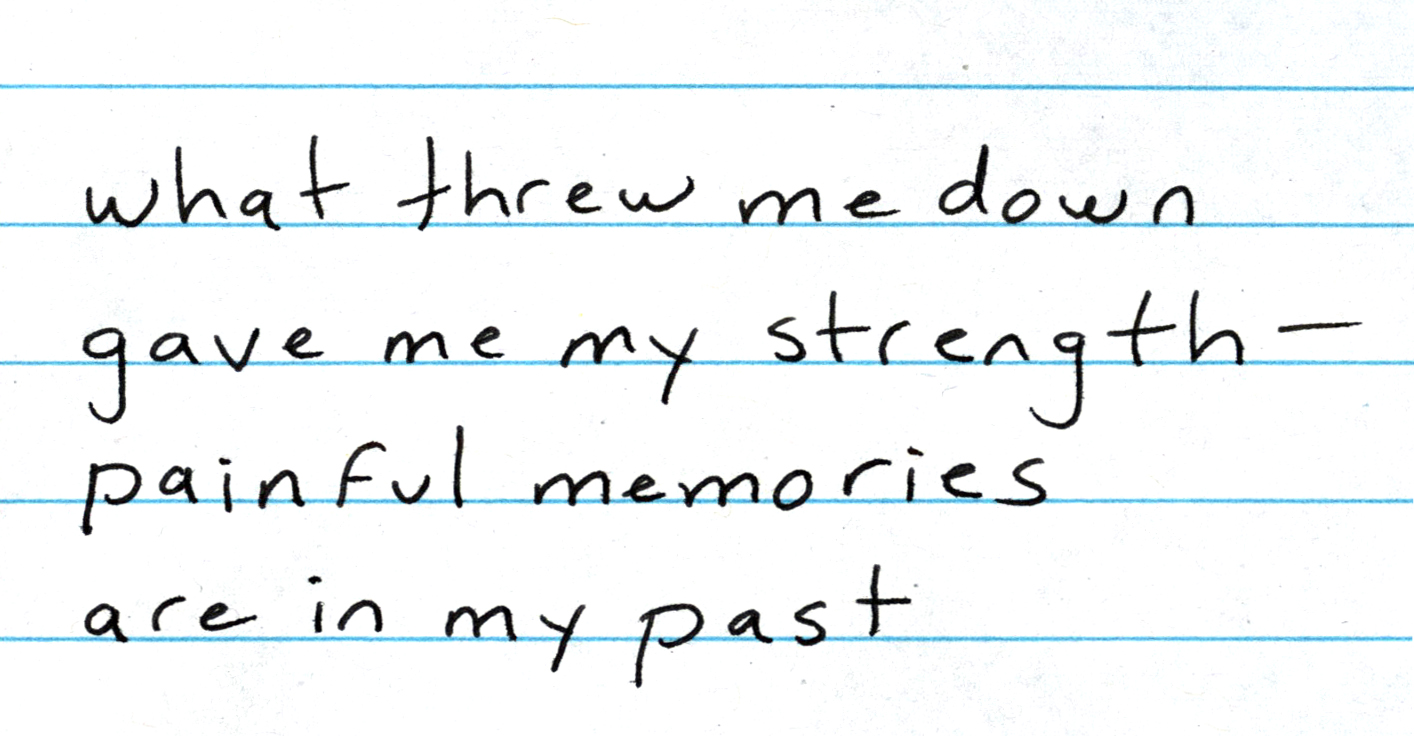 what threw me down
gave me my strength—
painful memories
are in my past